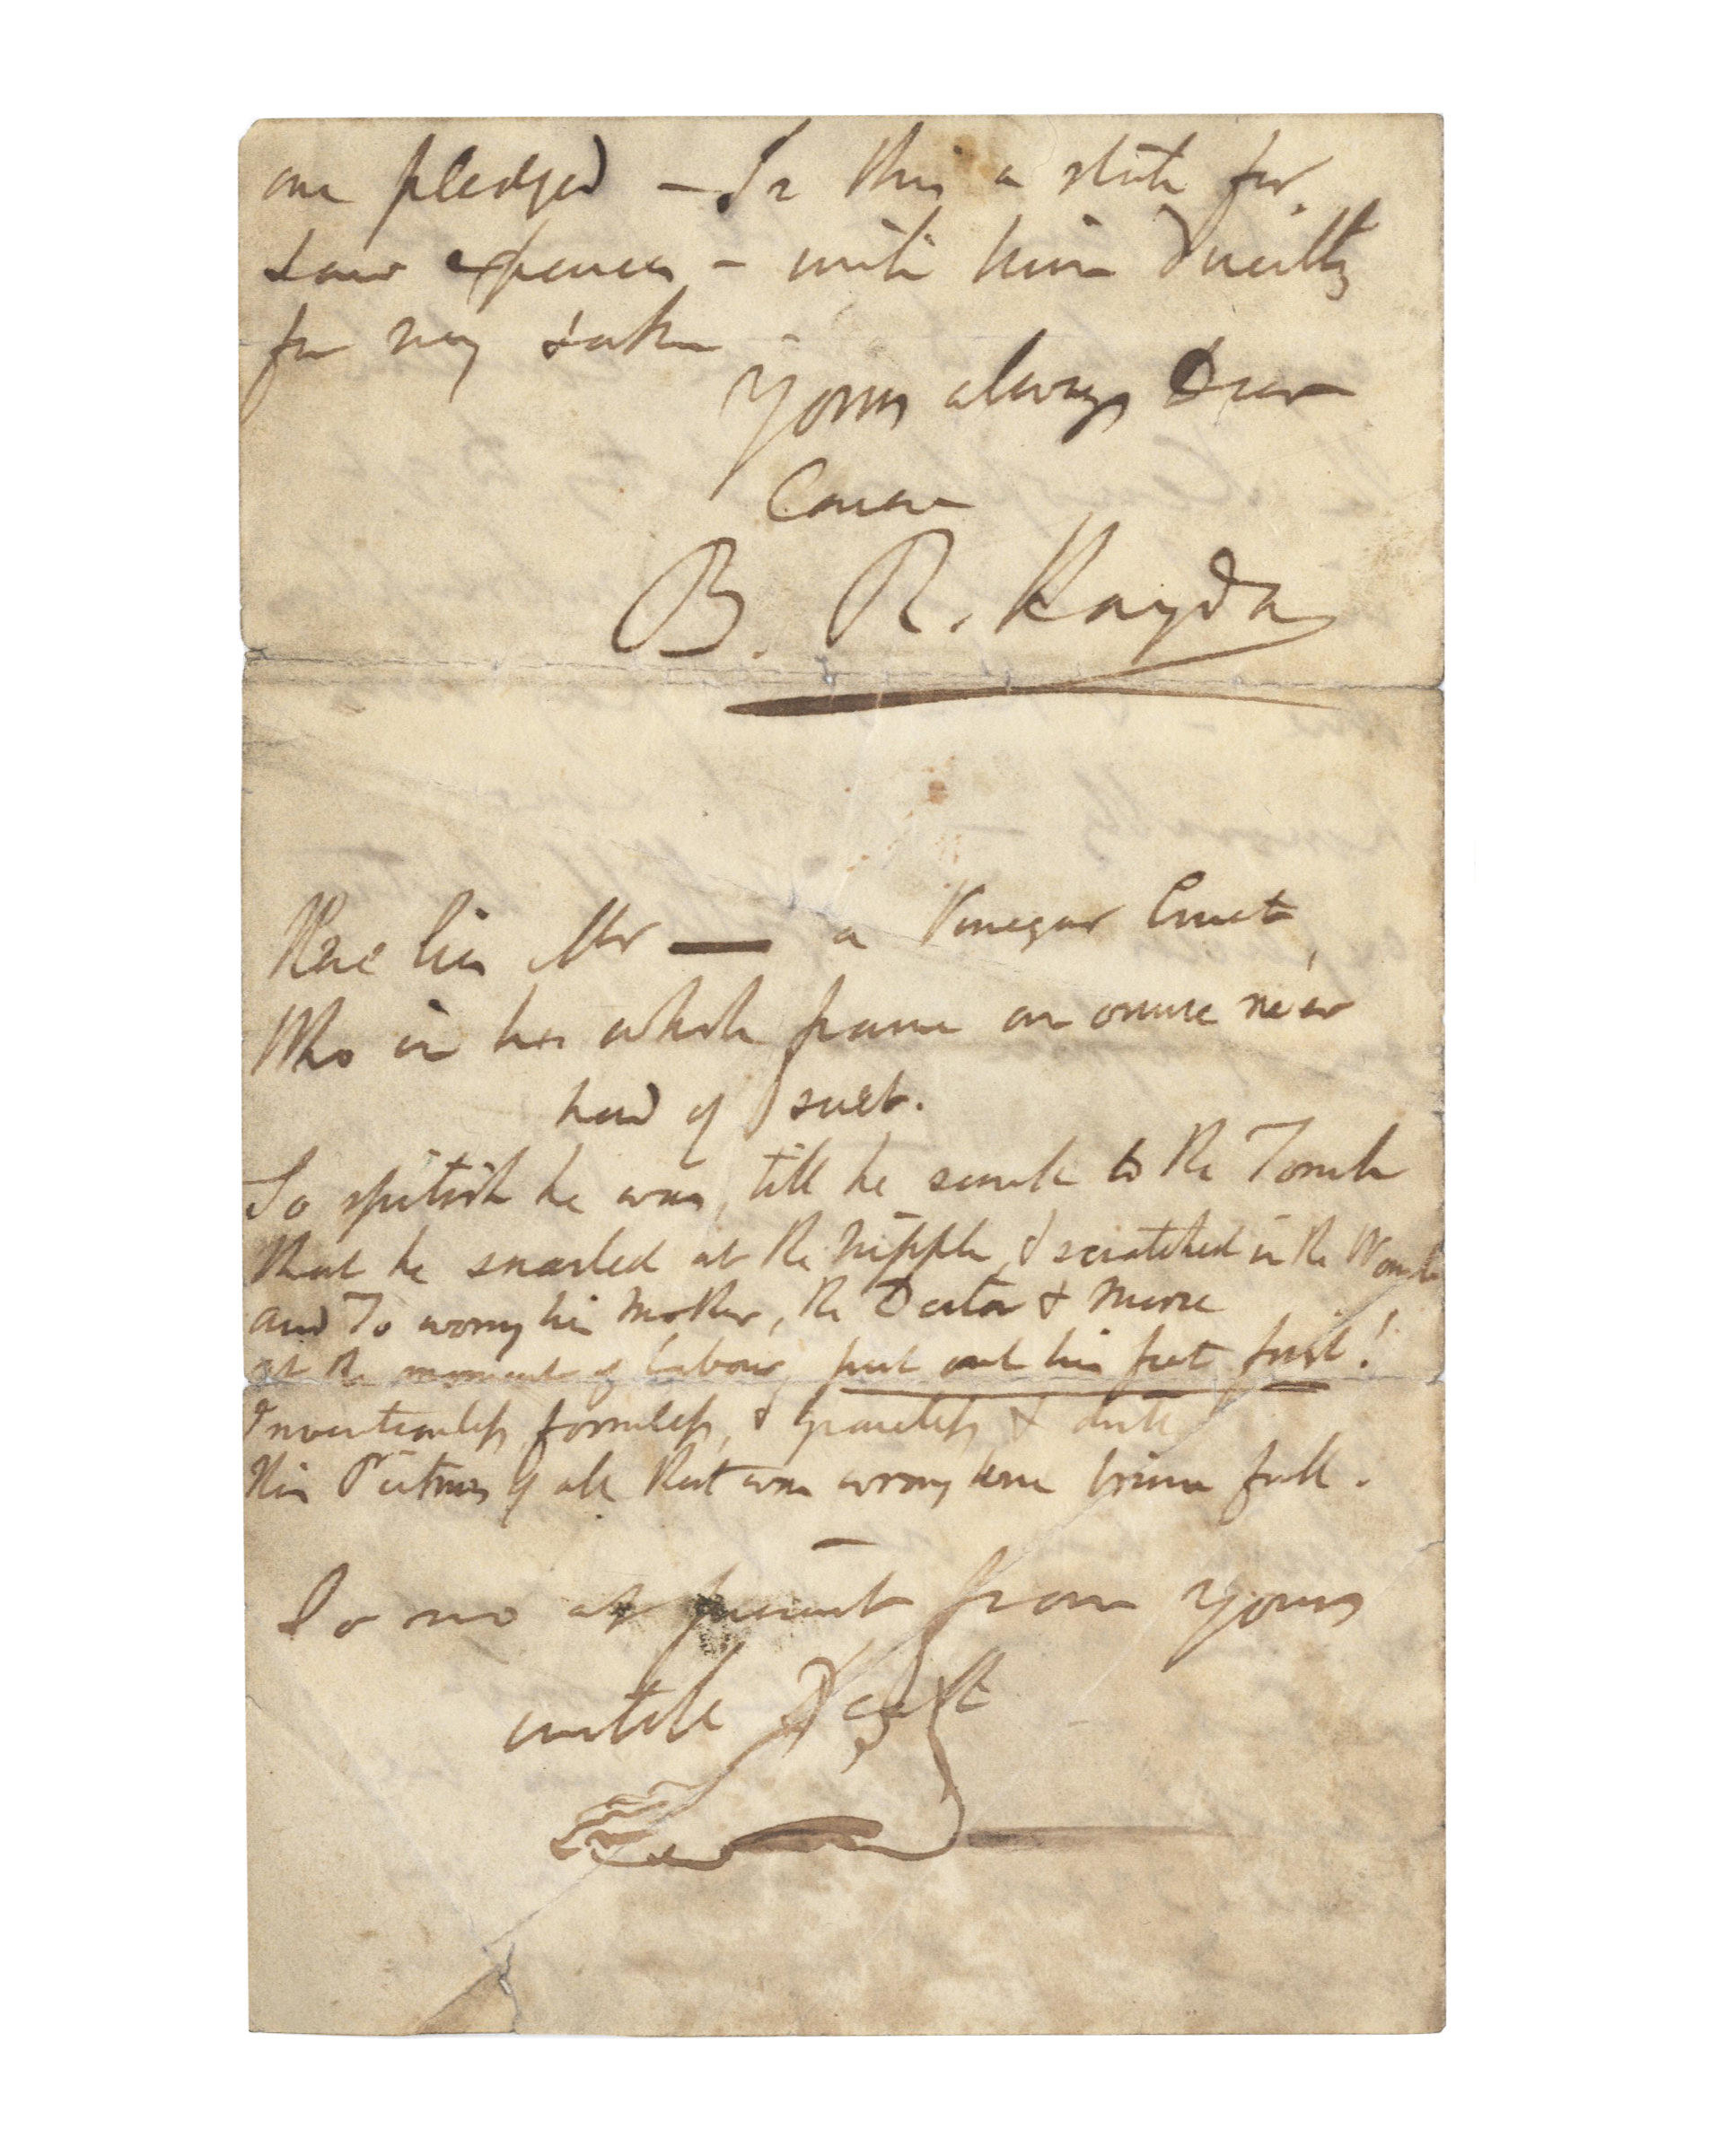 are pledged — Is this a state for
Law expences — write him directly
for my sake —
Yours always Dear
B. R. Haydon
Here lies Mr —— a Vinegar Cruet,
Who in his whole frame an ounce ne'er
had of suet.
So spitish he was, till he sunk to the Tomb
That he snarled at the nipple, & scratched in the Womb
And To worry his Mother, the Doctor & Nurse
at the moment of labour, put out his feet first!
Inventionless, formless, & graceless & dull
His Pictures of all that was wrong were brim full.
—
So no at present from yours
untill Death